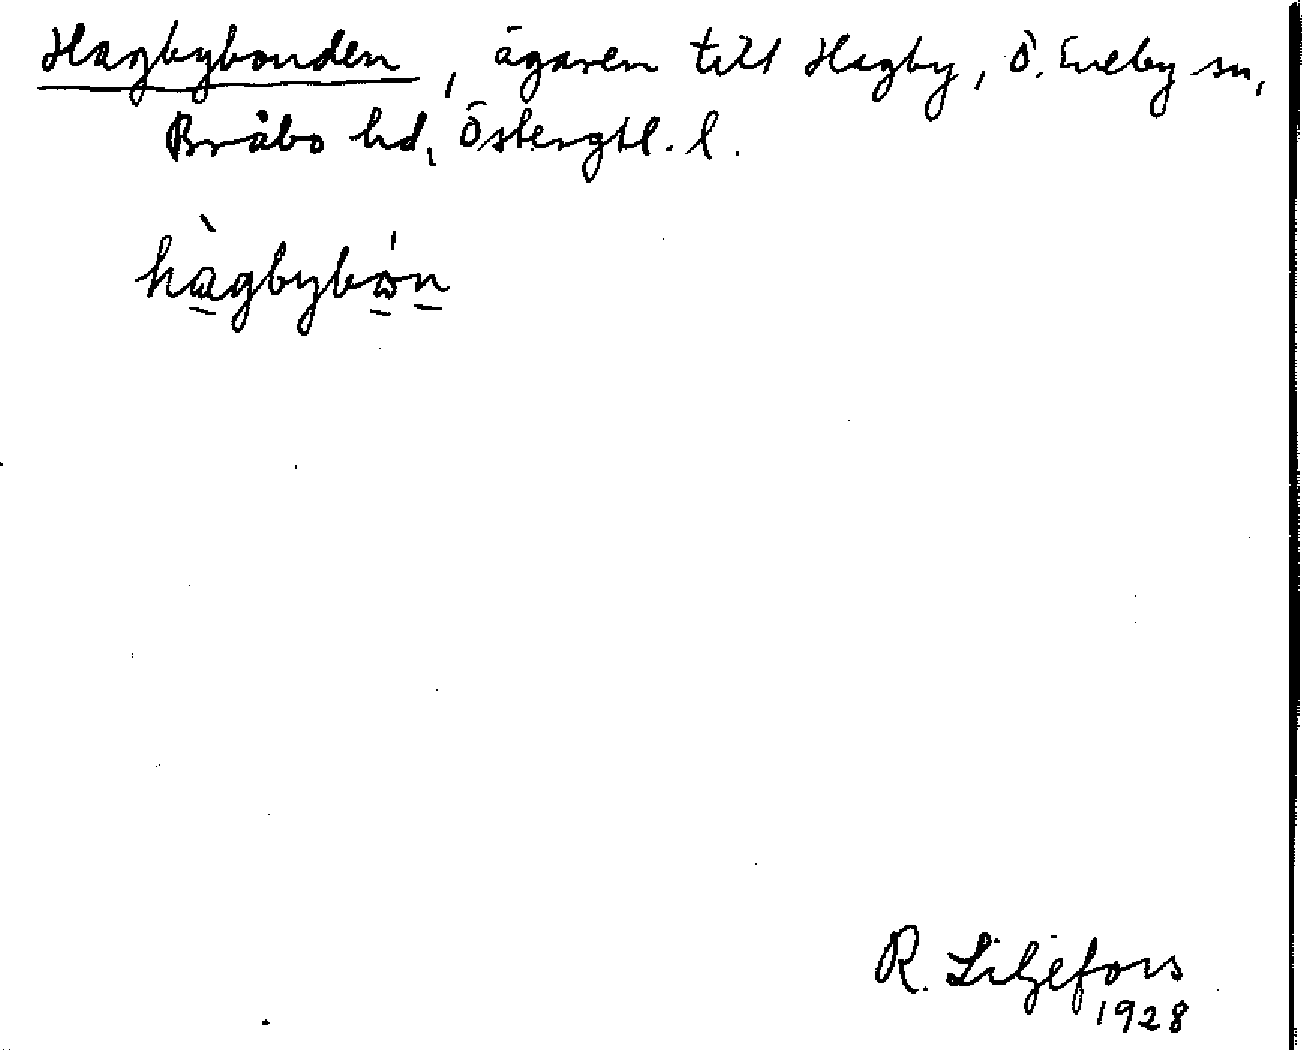 Hagbybonden, ägaren till Hagby, Ö. Eneby sn,
Bråbo hd, Östergtl. l.
hàgbybón
R. Liljefors
1928